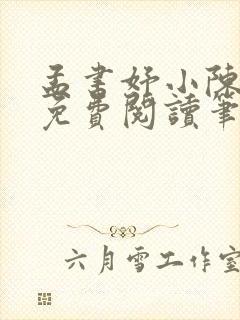 孟書妤小陳
免費閱讀筆
六月雪工作室